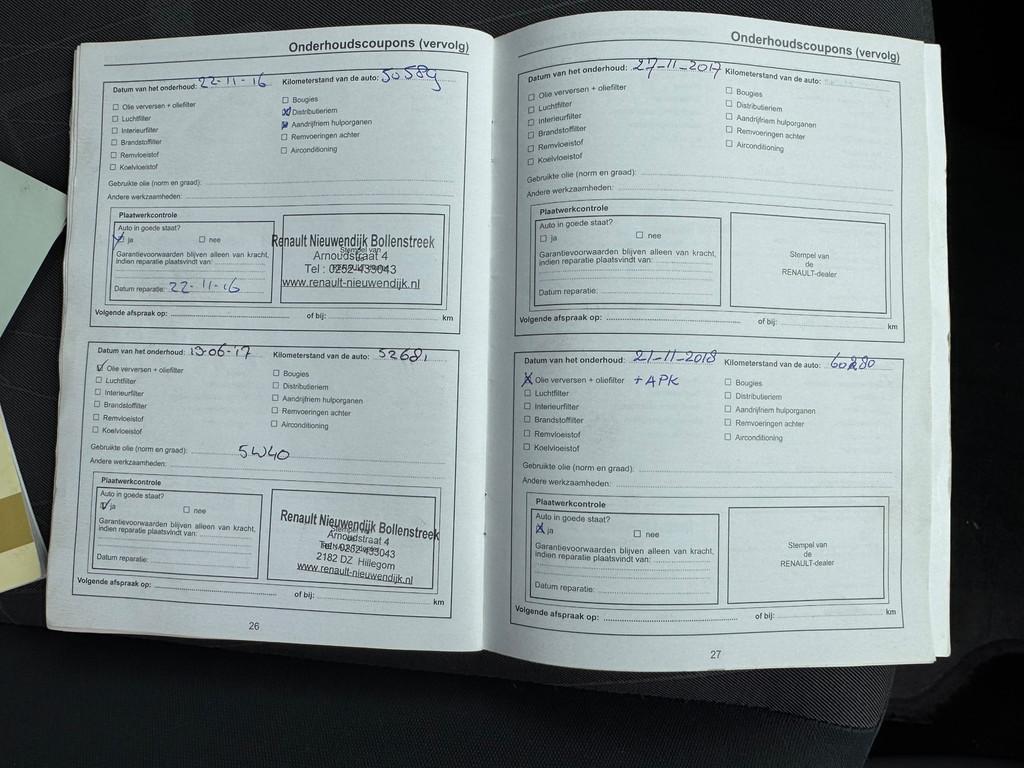 Onderhoudscoupons (vervolg)
Datum van het onderhoud: 22-11-16 Kilometerstand van de auto: 50589
☐ Olie verversen + oliefilter ☐ Bougies
☐ Luchtfilter ☒ Distributieriem
☐ Interieurfilter ☒ Aandrijfriem hulporganen
☐ Brandstoffilter ☐ Remvoeringen achter
☐ Remvloeistof ☐ Airconditioning
☐ Koelvloeistof
Gebruikte olie (norm en graad):
Andere werkzaamheden:
Plaatwerkcontrole
Auto in goede staat?
☒ ja ☐ nee
Garantievoorwaarden blijven alleen van kracht,
indien reparatie plaatsvindt van:
Datum reparatie: 22-11-16
Renault Nieuwendijk Bollenstreek
Stempel van
Arnoudstraat 4
Tel : 0252-433043
www.renault-nieuwendijk.nl
Volgende afspraak op: of bij: km
Datum van het onderhoud: 13-06-17 Kilometerstand van de auto: 52681
☑ Olie verversen + oliefilter ☐ Bougies
☐ Luchtfilter ☐ Distributieriem
☐ Interieurfilter ☐ Aandrijfriem hulporganen
☐ Brandstoffilter ☐ Remvoeringen achter
☐ Remvloeistof ☐ Airconditioning
☐ Koelvloeistof
Gebruikte olie (norm en graad): 5W40
Andere werkzaamheden:
Plaatwerkcontrole
Auto in goede staat?
☑ ja ☐ nee
Garantievoorwaarden blijven alleen van kracht,
indien reparatie plaatsvindt van:
Datum reparatie:
Renault Nieuwendijk Bollenstreek
Arnoudstraat 4
Tel : 0252-433043
2182 DZ Hillegom
www.renault-nieuwendijk.nl
Volgende afspraak op: of bij: km
26
Onderhoudscoupons (vervolg)
Datum van het onderhoud: 27-11-2017 Kilometerstand van de auto:
☐ Olie verversen + oliefilter ☐ Bougies
☐ Luchtfilter ☐ Distributieriem
☐ Interieurfilter ☐ Aandrijfriem hulporganen
☐ Brandstoffilter ☐ Remvoeringen achter
☐ Remvloeistof ☐ Airconditioning
☐ Koelvloeistof
Gebruikte olie (norm en graad):
Andere werkzaamheden:
Plaatwerkcontrole
Auto in goede staat?
☐ ja ☐ nee
Garantievoorwaarden blijven alleen van kracht,
indien reparatie plaatsvindt van:
Datum reparatie:
Stempel van
de
RENAULT-dealer
Volgende afspraak op: of bij: km
Datum van het onderhoud: 21-11-2018 Kilometerstand van de auto: 60280
☒ Olie verversen + oliefilter + APK ☐ Bougies
☐ Luchtfilter ☐ Distributieriem
☐ Interieurfilter ☐ Aandrijfriem hulporganen
☐ Brandstoffilter ☐ Remvoeringen achter
☐ Remvloeistof ☐ Airconditioning
☐ Koelvloeistof
Gebruikte olie (norm en graad):
Andere werkzaamheden:
Plaatwerkcontrole
Auto in goede staat?
☒ ja ☐ nee
Garantievoorwaarden blijven alleen van kracht,
indien reparatie plaatsvindt van:
Datum reparatie:
Stempel van
de
RENAULT-dealer
Volgende afspraak op: of bij: km
27